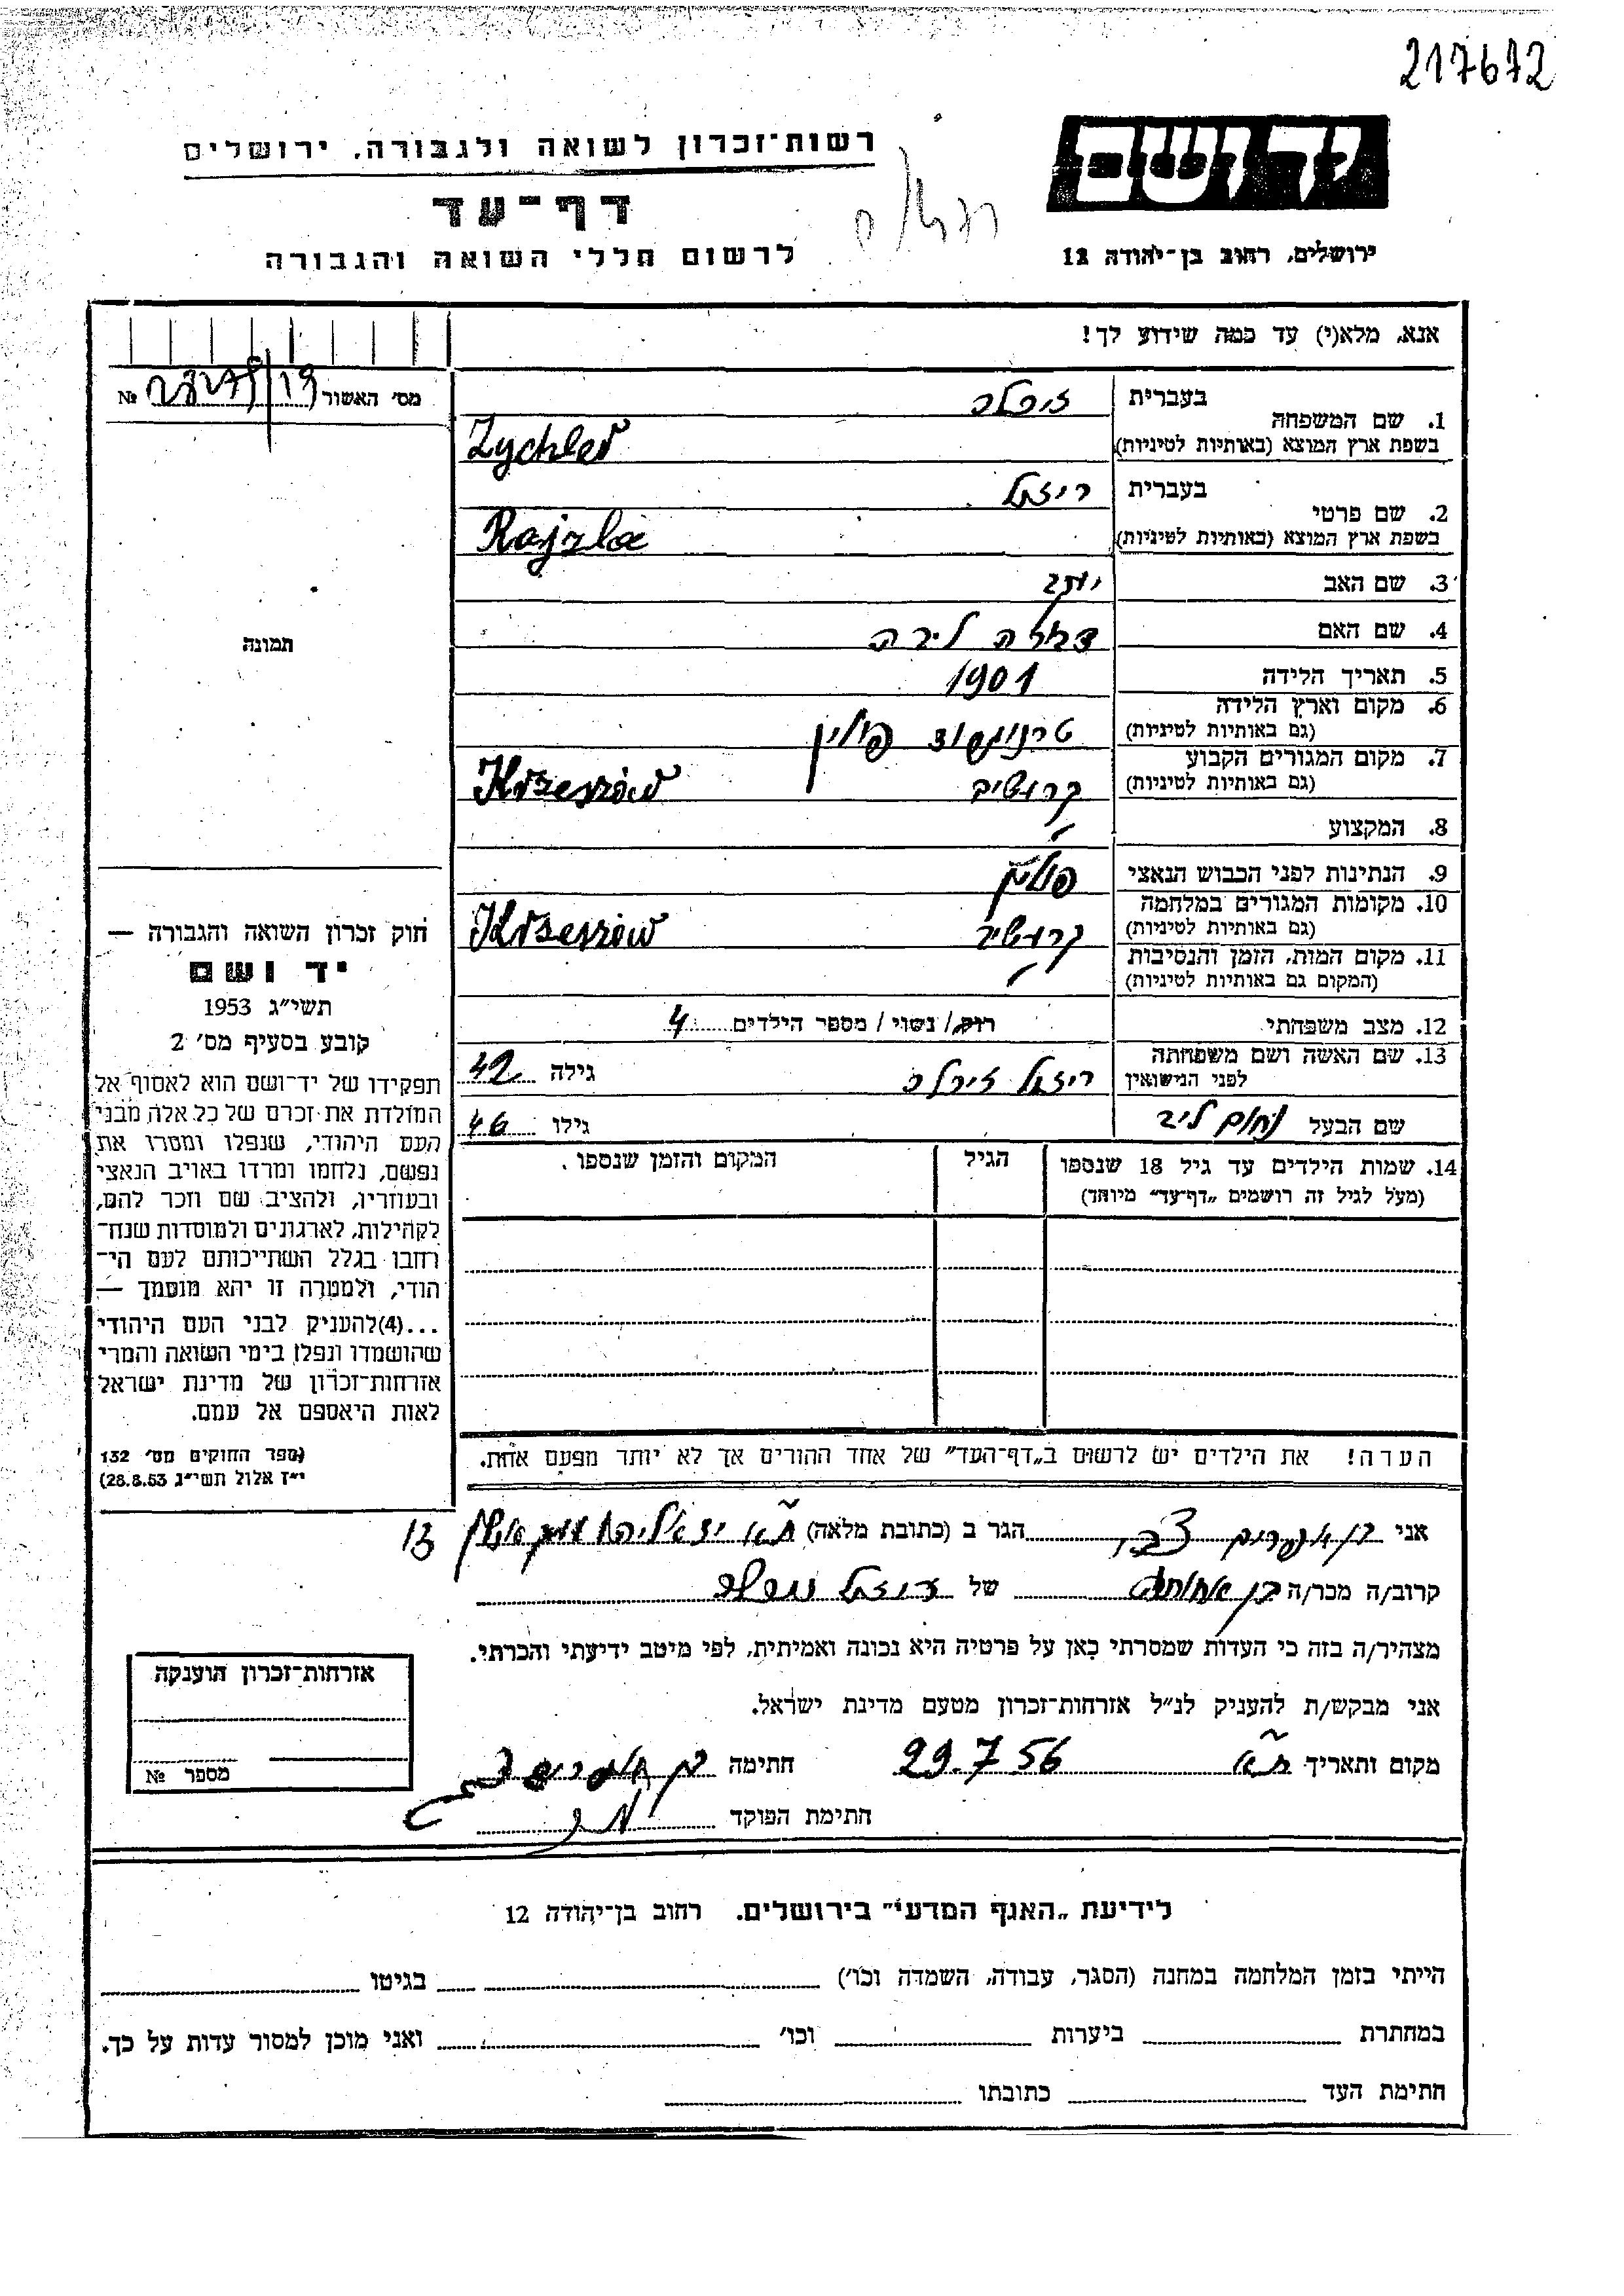 217672
יד ושם
רשות־זכרון לשואה ולגבורה, ירושלים
דף־עד
לרשום חללי השואה והגבורה
ירושלים, רחוב בן־יהודה 12
אנא, מלא(י) עד כמה שידוע לך!
מס׳ האשור № 
1. שם המשפחה
בעברית זיכלר
בשפת ארץ המוצא (באותיות לטיניות) Zychler
2. שם פרטי
בעברית ריזל
בשפת ארץ המוצא (באותיות לטיניות) Rajzla
3. שם האב
4. שם האם
5. תאריך הלידה 1901
6. מקום וארץ הלידה
(גם באותיות לטיניות) פולין
7. מקום המגורים הקבוע
(גם באותיות לטיניות) קרושיב Krzeszów
8. המקצוע
9. הנתינות לפני הכבוש הנאצי
10. מקומות המגורים במלחמה
(גם באותיות לטיניות) קרושיב Krzeszów
11. מקום המות, הזמן והנסיבות
(המקום גם באותיות לטיניות)
12. מצב משפחתי רווק/ נשוי/ מספר הילדים 4
13. שם האשה ושם משפחתה
לפני הנישואין ריזל זיכלר גילה 42
שם הבעל נחום ליב גילו 46
14. שמות הילדים עד גיל 18 שנספו
(מעל לגיל זה רושמים „דף־עד״ מיוחד)
הגיל
המקום והזמן שנספו.
הערה! את הילדים יש לרשום ב„דף־העד״ של אחד ההורים אך לא יותר מפעם אחת.
תמונה
חוק זכרון השואה והגבורה —
יד ושם
תשי״ג 1953
קובע בסעיף מס׳ 2
תפקידו של יד־ושם הוא לאסוף אל
המולדת את זכרם של כל אלה מבני
העם היהודי, שנפלו ומסרו את
נפשם, נלחמו ומרדו באויב הנאצי
ובעוזריו, ולהציב שם וזכר להם,
לקהילות, לארגונים ולמוסדות שנח־
רחבו בגלל השתייכותם לעם הי־
הודי, ולמטרה זו יהא מוסמך —
...(4)להעניק לבני העם היהודי
שהושמדו ונפלו בימי השואה והמרי
אזרחות־זכרון של מדינת ישראל
לאות היאספם אל עמם.
(ספר החוקים מס׳ 132
י״ז אלול תשי״ג 28.8.53)
אני בן אפרים צבי הגר ב (כתובת מלאה) ת״א 13
קרוב/ה מכר/ה בן של ריזל זיכלר
מצהיר/ה בזה כי העדות שמסרתי כאן על פרטיה היא נכונה ואמיתית, לפי מיטב ידיעתי והכרתי.
אני מבקש/ת להעניק לנ״ל אזרחות־זכרון מטעם מדינת ישראל.
מקום ותאריך ת״א 29.7 56 חתימה בן אפרים צבי
חתימת הפוקד
אזרחות־זכרון הוענקה
מספר №
לידיעת „האגף המדעי״ בירושלים, רחוב בן־יהודה 12
הייתי בזמן המלחמה במחנה (הסגר, עבודה, השמדה וכו׳) בגיטו
במחתרת ביערות וכו׳ ואני מוכן למסור עדות על כך.
חתימת העד כתובתו